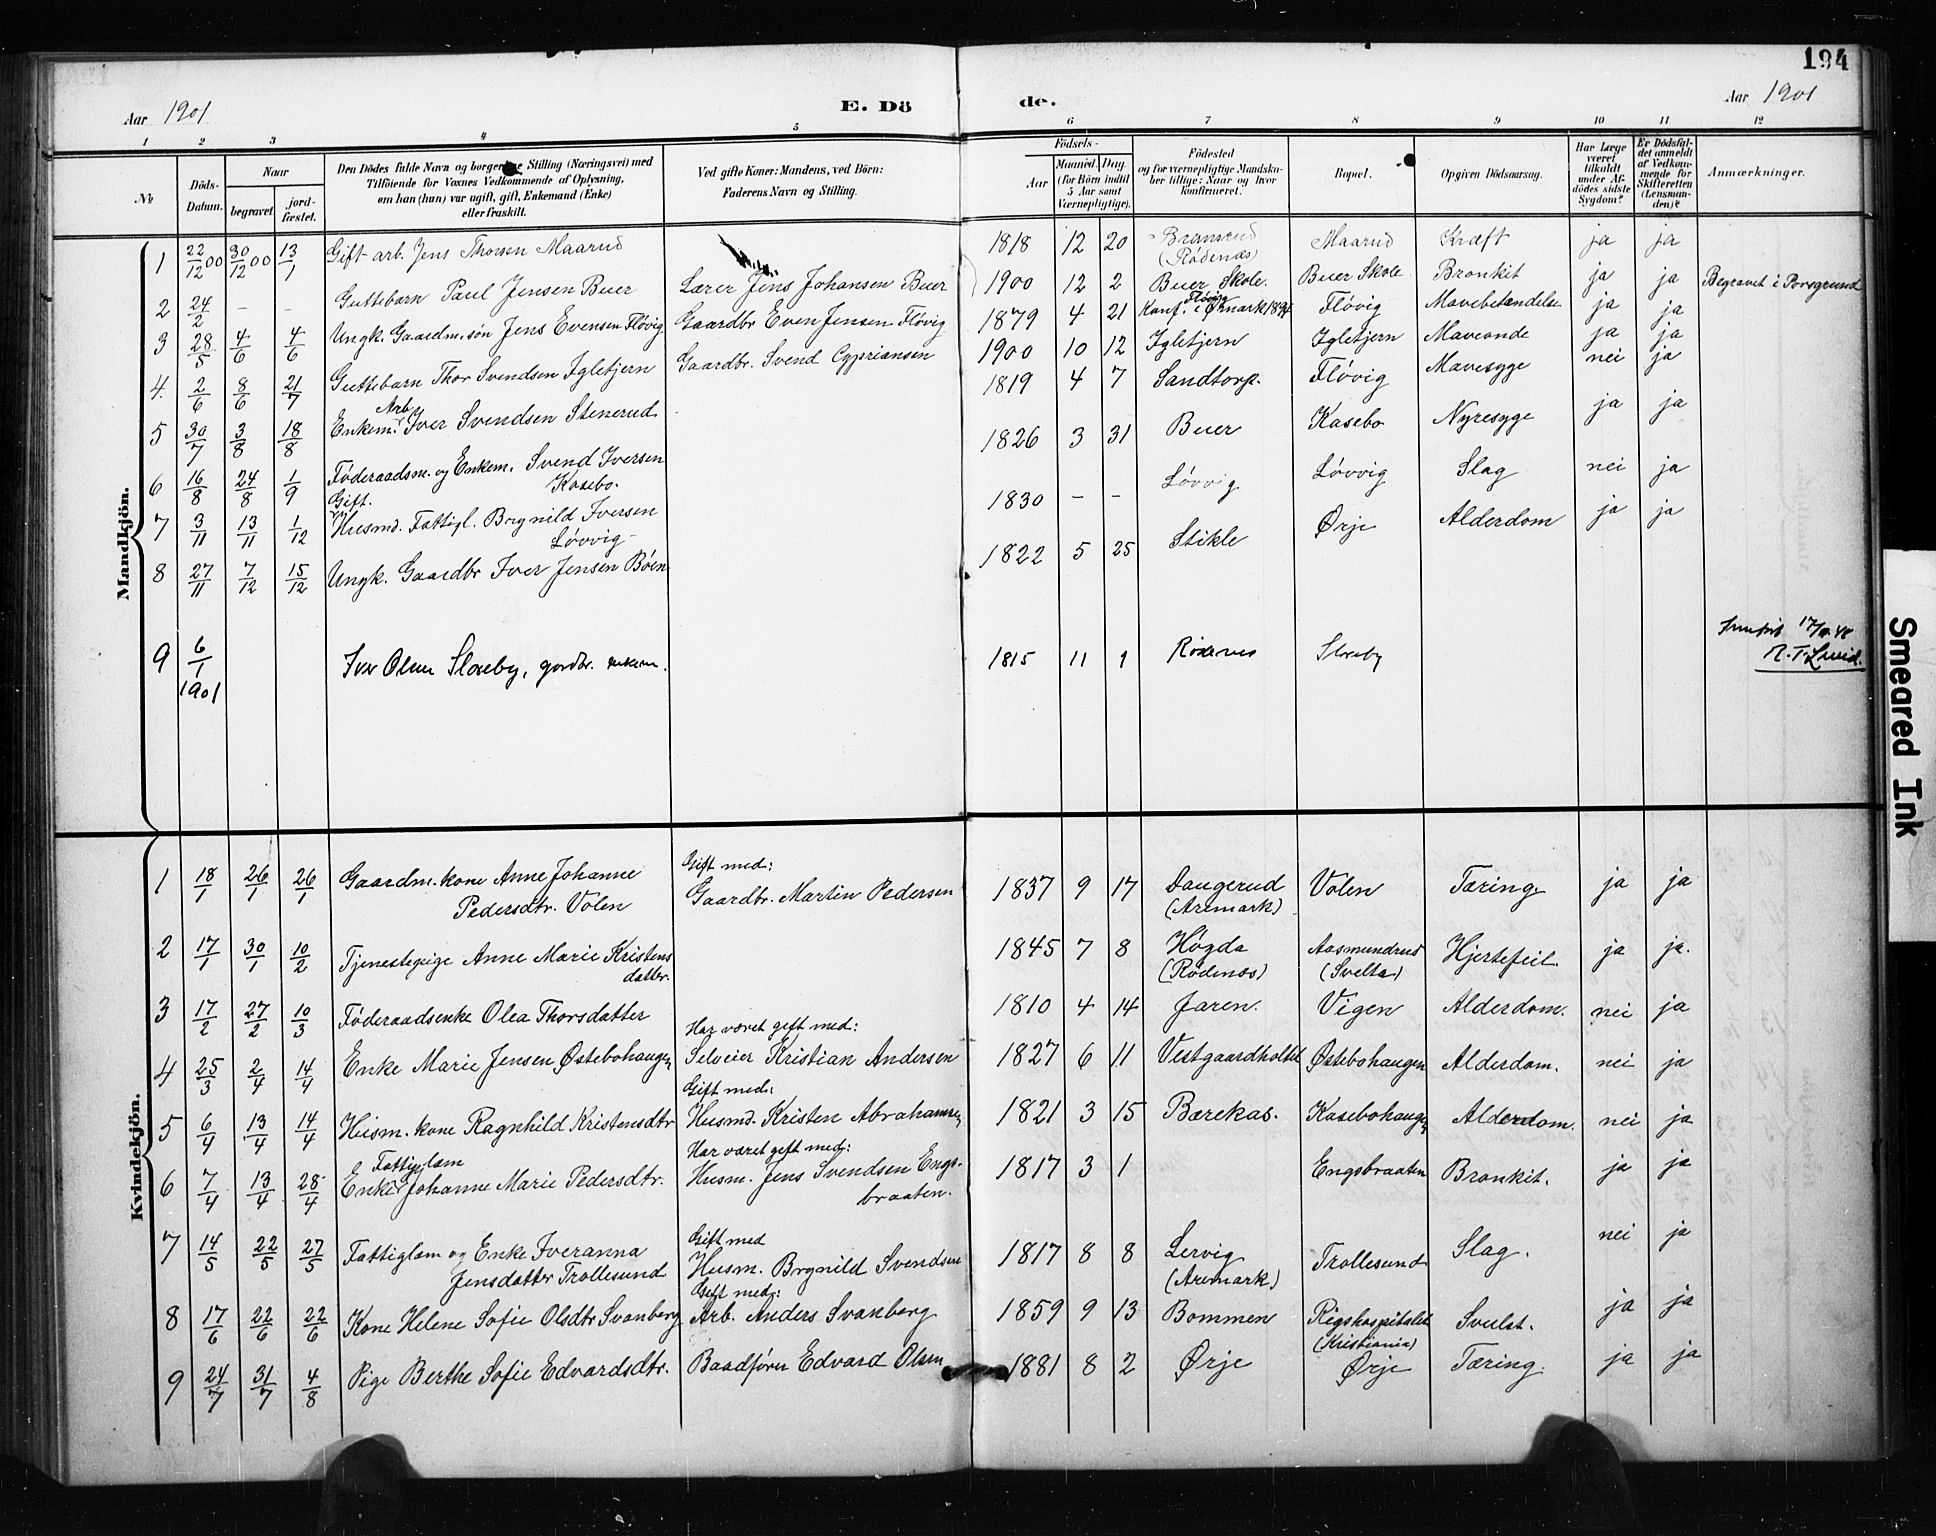 194
Aar 1901 E. Dö de. Aar 1901
1 2 3 4 5 6 7 8 9 10 11 12
No Döds-Datum. Naar begravet. jordfæstet. Den Dödes fulde Navn og borgerlige Stilling (Næringsvei) med Tilföiende for Voxnes Vedkommende af Oplysning, om han (hun) var ugift, gift, Enkemand (Enke) eller fraskilt. Ved gifte Koner: Mandens, ved Börn: Faderens Navn og Stilling. Födsels- Aar Maaned. Dag. (for Börn indtil 5 Aar samt Værnepligtige). Födested og for værnepligtige Mandskaber tillige: Naar og hvor konfirmeret. Bopæl. Opgiven Dödsaarsag. Har Læge været tilkaldt under Afdödes sidste Sygdom? Er Dödsfaldet anmeldt af Vedkommende for Skifteretten (Lensmanden)? Anmærkninger.
Mandkjön.
1 22/12 00 30/12 00 13/1 Gift arb. Jens Thorsen Maarud 1818 12 20 (Rödenæs) Maarud Kræft ja ja
2 24/2 - - Guttebarn Paul Jensen Buer Lærer Jens Johansen Buer 1900 12 2 Buer Skole. Buer Skole Bronkit ja ja Begravet i Porsgrund
3 28/5 4/6 4/6 Ungk. Gaardm.søn Jens Evensen Fløvig Gaardbr Even Jensen Fløvig 1879 4 21 Fløvig Konf. i Øymark 1894 Fløvig Mavebetændelse ja ja
4. 2/6 8/6 21/7 Guttebarn Thor Svendsen Igletjern Gaardbr. Svend Cypriansen 1900 10 12 Igletjern Igletjern Maveonde ja ja
5 30/7 3/8 18/8 Enkem. Arb. Iver Svendsen Stenerud 1819 4 7 Sandtorp. Fløvig Mavesyge nei ja
6 16/8 24/8 1/9 Føderaadsm. og Enkem. Svend Iversen Kasebo. 1826 3 31 Buer Kasebo Nyresyge ja ja
7 3/11 13/11 1/12 Gift. Husmd. Fattigl. Brynild Iversen Løvvig 1830 - - Løvvig Løvvig Slag nei ja
8 27/11 7/12 15/12 Ungk. Gaardbr Iver Jensen Bøen 1822 5 25 Stikle Ørje Alderdom ja ja
9 6/1 1901 Iver Olsen Sloreby, gardbr. enkem. 1815 11 1 Rødenes Sloreby Innført
Kvindekjön.
1 18/1 26/1 26/1 Gaardm. kone Anne Johanne Pedersdtr. Volen Gift med: Gaardbr. Martin Pedersen 1837 9 17 Daugerud (Aremark) Volen Tæring ja ja
2 17/1 30/1 10/2 Tjenestepige Anne Marie Kristensdatter. 1845 7 8 Høgda (Rødenæs) Aasmundrud (Svelta) Hjertefeil. ja ja.
3 17/2 27/2 10/3 Føderaadsenke Olea Thorsdatter 1810 4 14 Jaren. Vigen Alderdom. nei ja
4 25/3 2/4 14/4 Enke Marie Jensen Østebohaugen Har været gift med: Selveier Kristian Andersen 1827 6 11 Vestgaardholtet Østebohaugen Alderdom. nei ja
5 6/4 13/4 14/4 Husm. kone Ragnhild Kristensdtr Gift med: Husmd. Kristen Abrahamsen 1821 3 15 Bærekas. Kasebohaugen Alderdom. nei ja
6 7/4 13/4 28/4 Enke Fattiglam Johanne Marie Pedersdtr. Har været gift med: Husm. Jens Svendsen Engsbraaten. 1817 3 1 Engsbraaten Bronkit. ja ja
7 14/5 22/5 27/5 Fattiglam og Enke Iveranna Jensdatter Trollesund Gift med Husm. Brynild Svendsen 1817 8 8 Lervig (Aremark) Trollesund Slag. nei ja
8 17/6 22/6 22/6 Kone Helene Sofie Olsdtr Svanberg Gift med: Arb. Anders Svanberg 1859 9 13 Bommen Rigshospitalet (Kristiania) Svulst. ja ja
9 24/7 31/7 4/8 Pige Berthe Sofie Edvardsdtr. Baadfører Edvard Olsen 1881 8 2 Ørje Ørje Tæring. ja ja
Smeared Ink